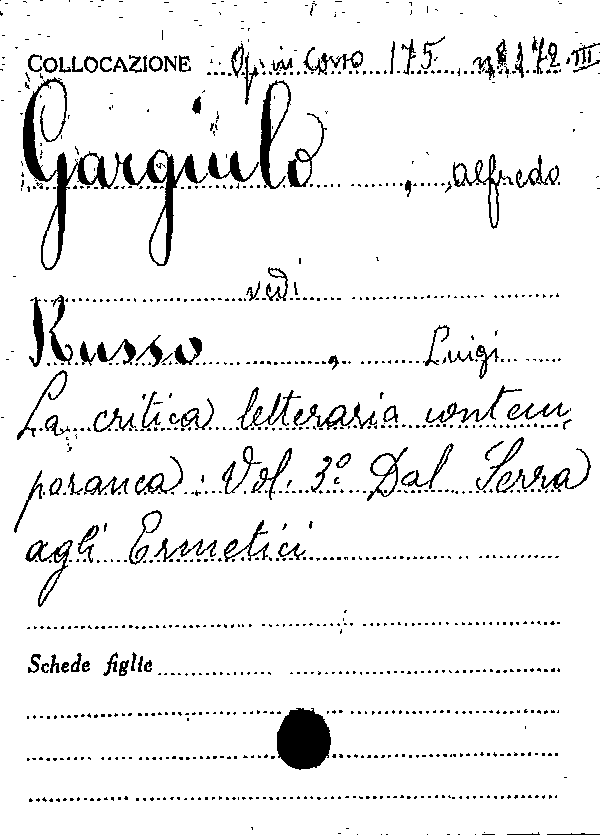 COLLOCAZIONE Op. in Corso 175 172.III
Gargiulo, Alfredo
vedi
Russo, Luigi
La critica letteraria contem,
poranea: Vol. 3º Dal Serra
agli Ermetici
Schede figlie